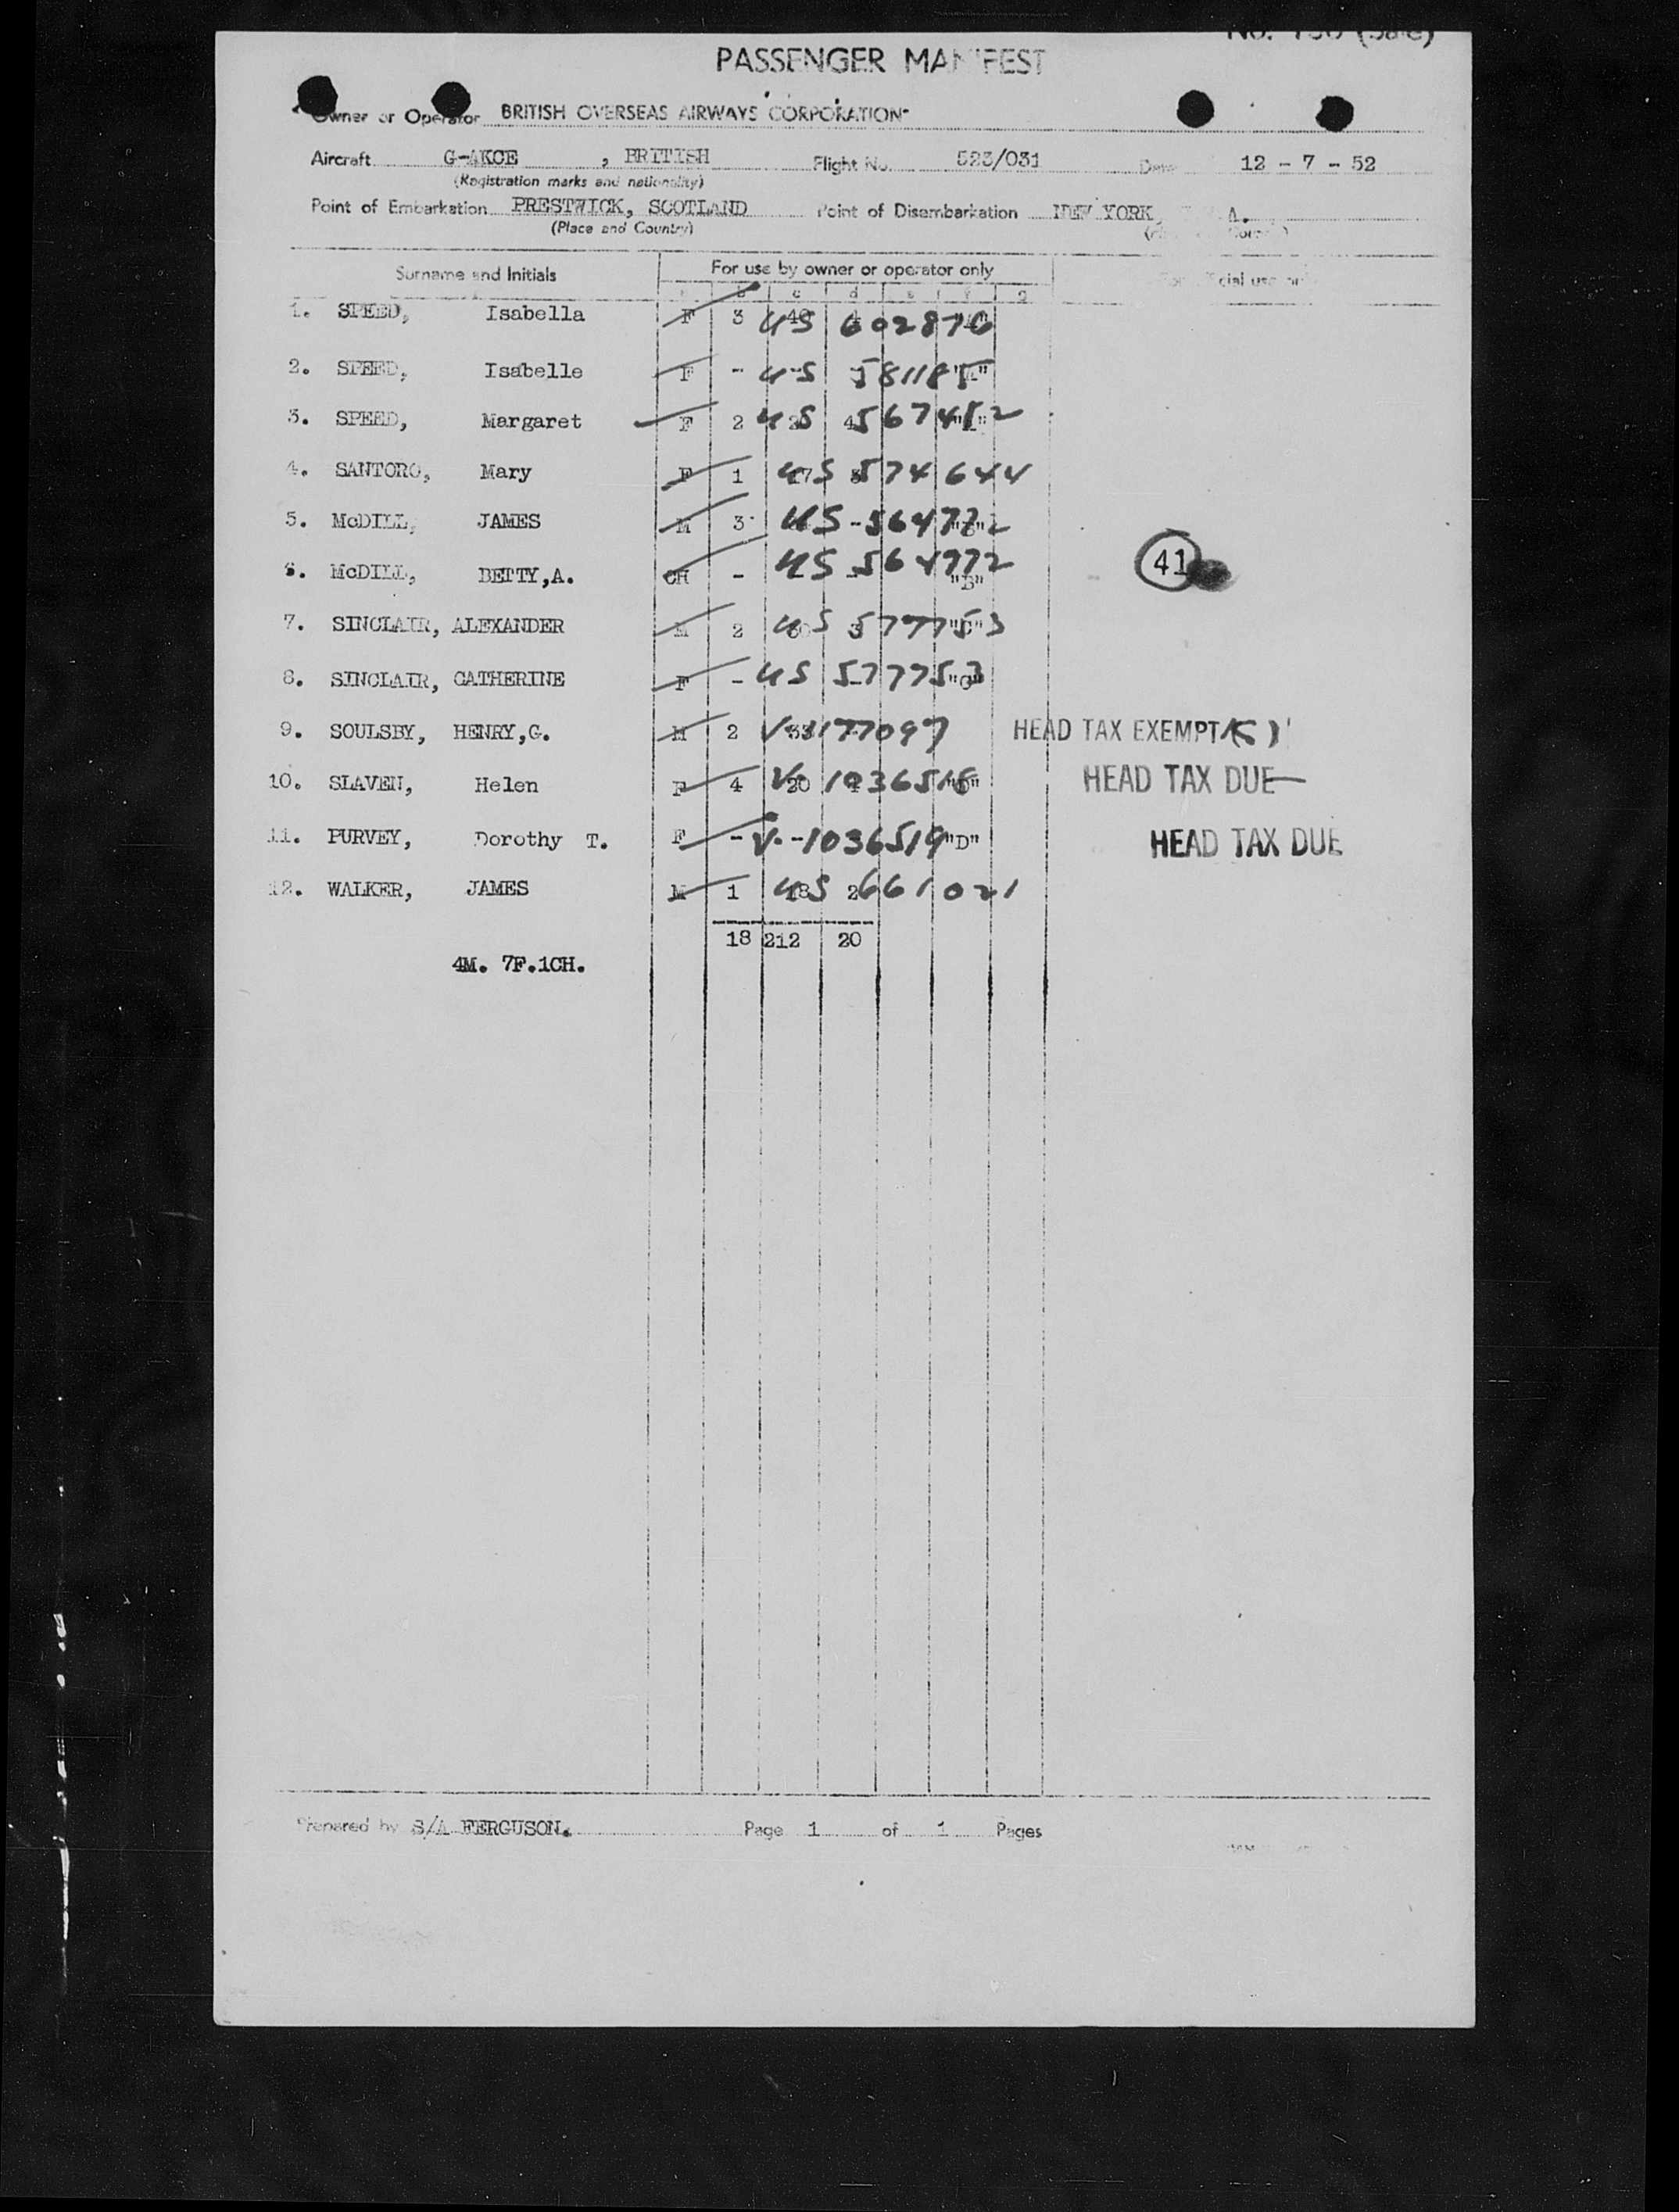 PASSENGER MANIFEST
Owner or Operator BRITISH OVERSEAS AIRWAYS CORPORATION
Aircraft G-AKCE , BRITISH Flight No. 523/031 Date 12 - 7 - 52
(Registration marks and nationality)
Point of Embarkation PRESTWICK, SCOTLAND Point of Disembarkation NEW YORK, A.
(Place and Country)
Surname and Initials For use by owner or operator only
b c d e f g
1. SPEED, Isabella F 3 US 602876
2. SPEED, Isabelle F - US 581185
3. SPEED, Margaret F 2 US 567452
4. SANTORO, Mary F 1 US 574644
5. McDILL, JAMES M 3 US 564772
6. McDILL, BETTY,A. CH - US 564772 "B"
41
7. SINCLAIR, ALEXANDER M 2 US 577753
8. SINCLAIR, CATHERINE F - US 577753
9. SOULSBY, HENRY,G. M 2 V-1177097 HEAD TAX EXEMPT
10. SLAVEN, Helen F 4 V- 1036518 HEAD TAX DUE
11. PURVEY, Dorothy T. F - V-1036519 "D" HEAD TAX DUE
12. WALKER, JAMES M 1 US 661021
18 212 20
4M. 7F.1CH.
Prepared by S/A FERGUSON. Page 1 of 1 Pages